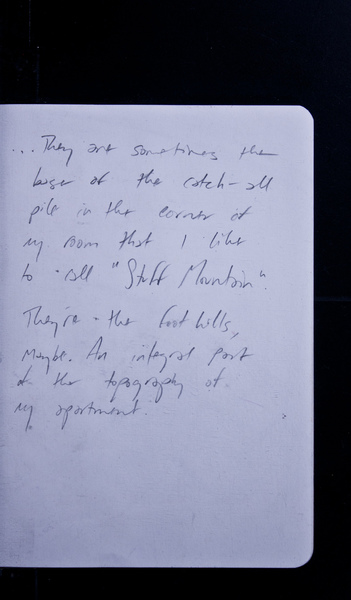 ...They are sometimes the
base of the catch-all
pile in the corner of
my room that I like
to call "Stuff Mountain".
They're the foothills,
maybe. An integral part
of the topography of
my apartment.